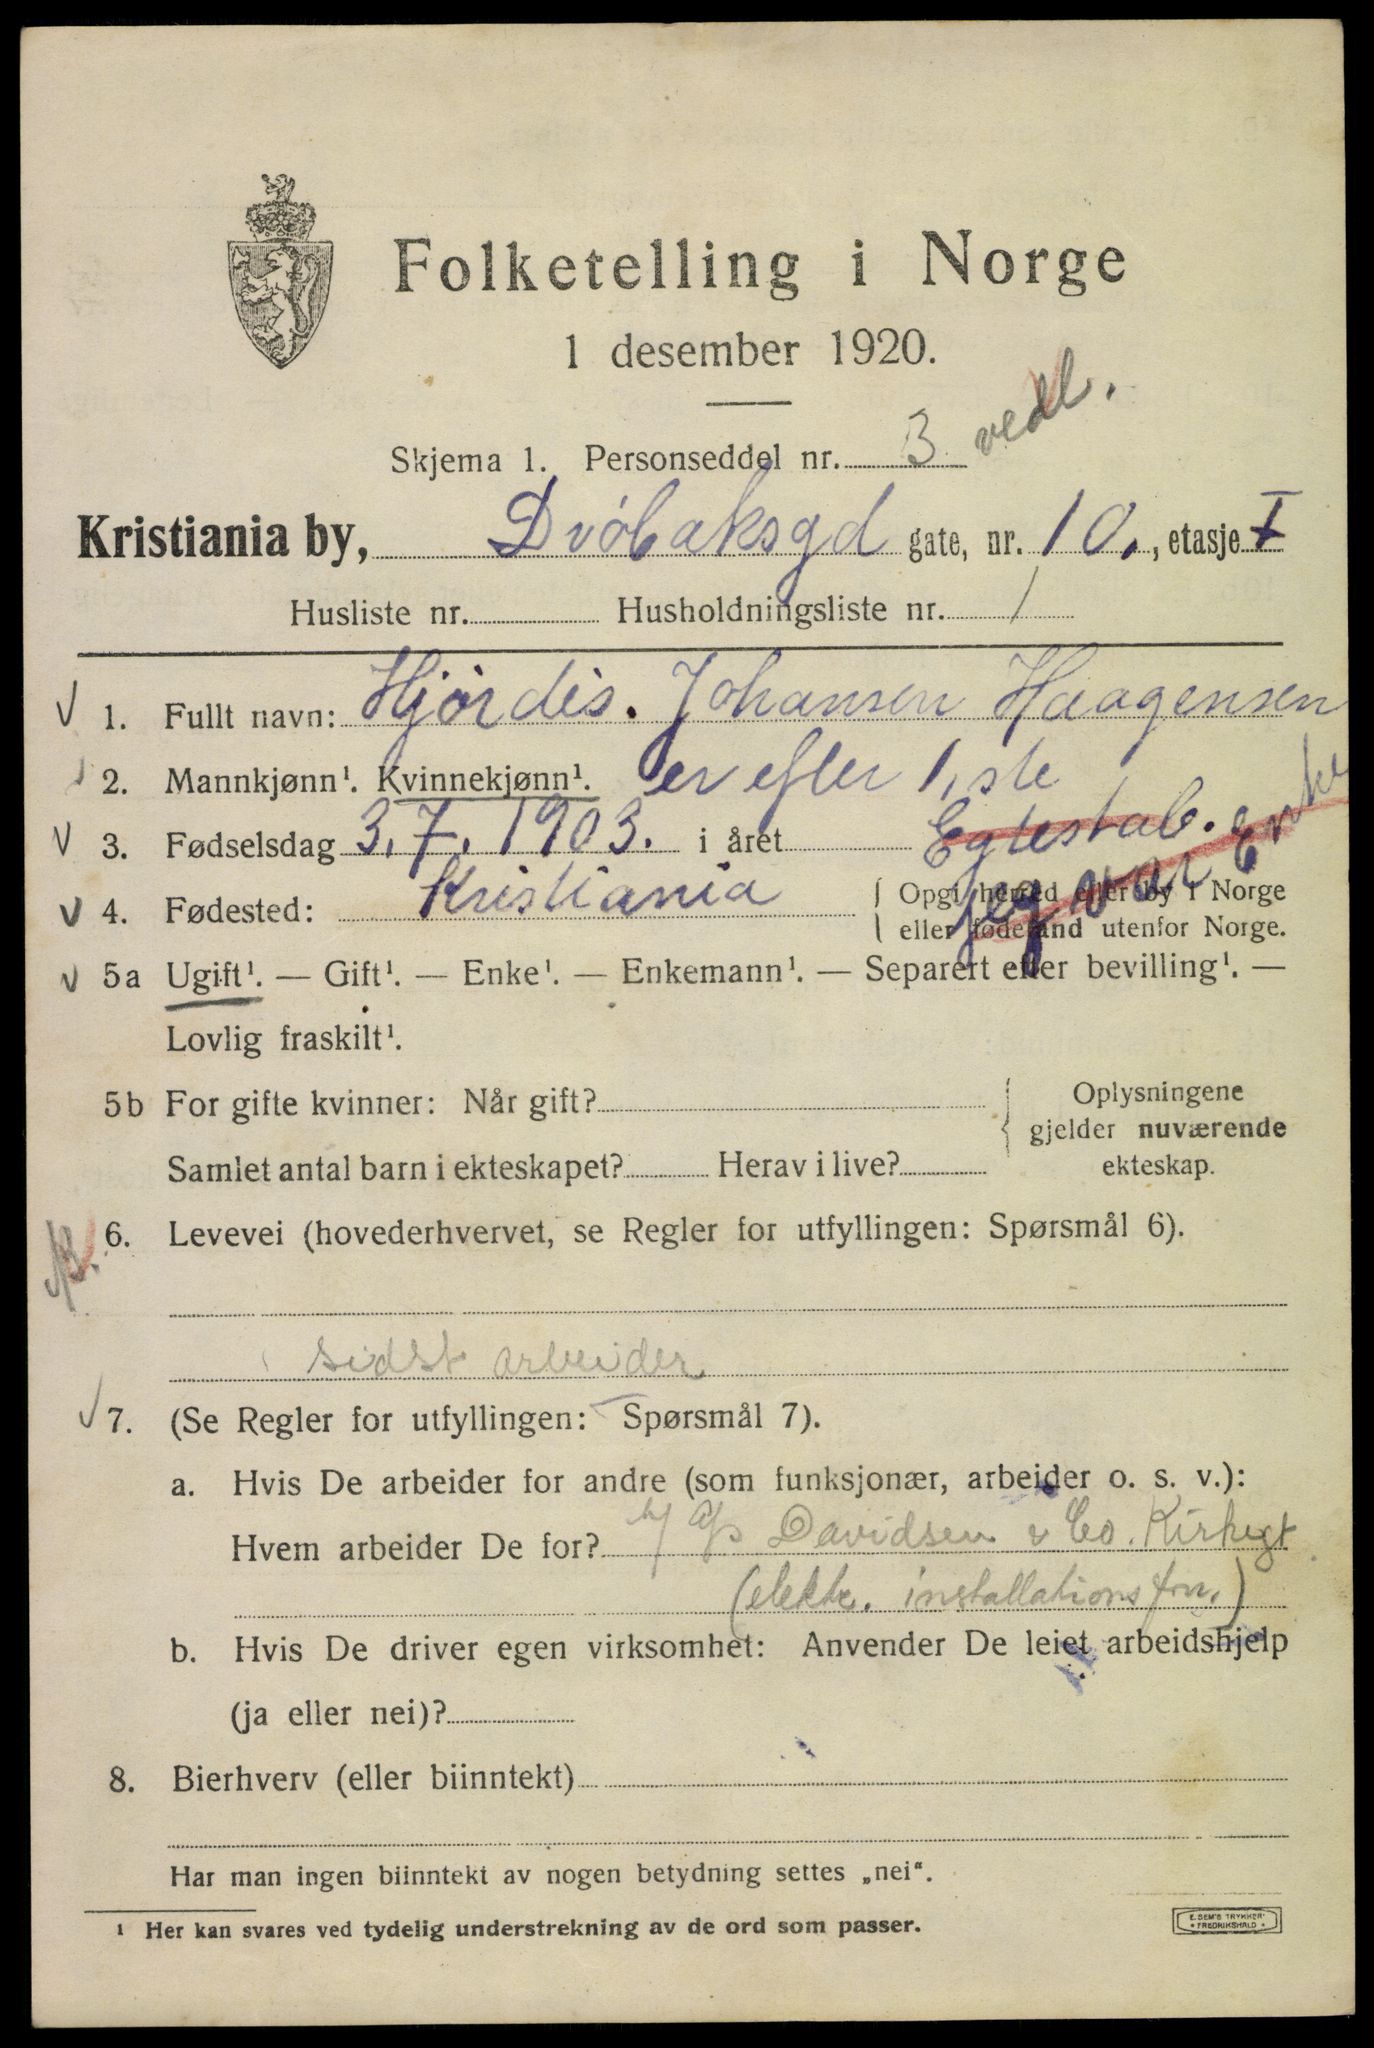 Folketelling i Norge
1 desember 1920.
Skjema 1. Personseddel nr. 3 vedl.
Kristiania by, Dröbaksgd gate, nr. 10., etasje I
Husliste nr. Husholdningsliste nr. 1
1. Fullt navn: Hjördis. Johansen Haagensen
2. Mannkjønn¹. Kvinnekjønn¹. er efter 1,ste
3. Fødselsdag 3.7.1903. i året Egtestab.
jeg var Enke
4. Fødested: Kristiania Opgi herred eller by i Norge
eller fødeland utenfor Norge.
5a Ugift¹. — Gift¹. — Enke¹. — Enkemann¹. — Separert efter bevilling¹. —
Lovlig fraskilt¹.
5b For gifte kvinner: Når gift? Oplysningene
gjelder nuværende
Samlet antal barn i ekteskapet? Herav i live? ekteskap.
6. Levevei (hovederhvervet, se Regler for utfyllingen: Spørsmål 6).
sidst arbeider
7. (Se Regler for utfyllingen: Spørsmål 7).
a. Hvis De arbeider for andre (som funksjonær, arbeider o. s. v.):
Hvem arbeider De for? A/S Davidsen & Co. Kirkegt
(elektr. installationsfrn.)
b. Hvis De driver egen virksomhet: Anvender De leiet arbeidshjelp
(ja eller nei)?
8. Bierhverv (eller biinntekt)
Har man ingen biinntekt av nogen betydning settes „nei“.
¹ Her kan svares ved tydelig understrekning av de ord som passer.
E. SEM'S TRYKKERI
FREDRIKSHALD